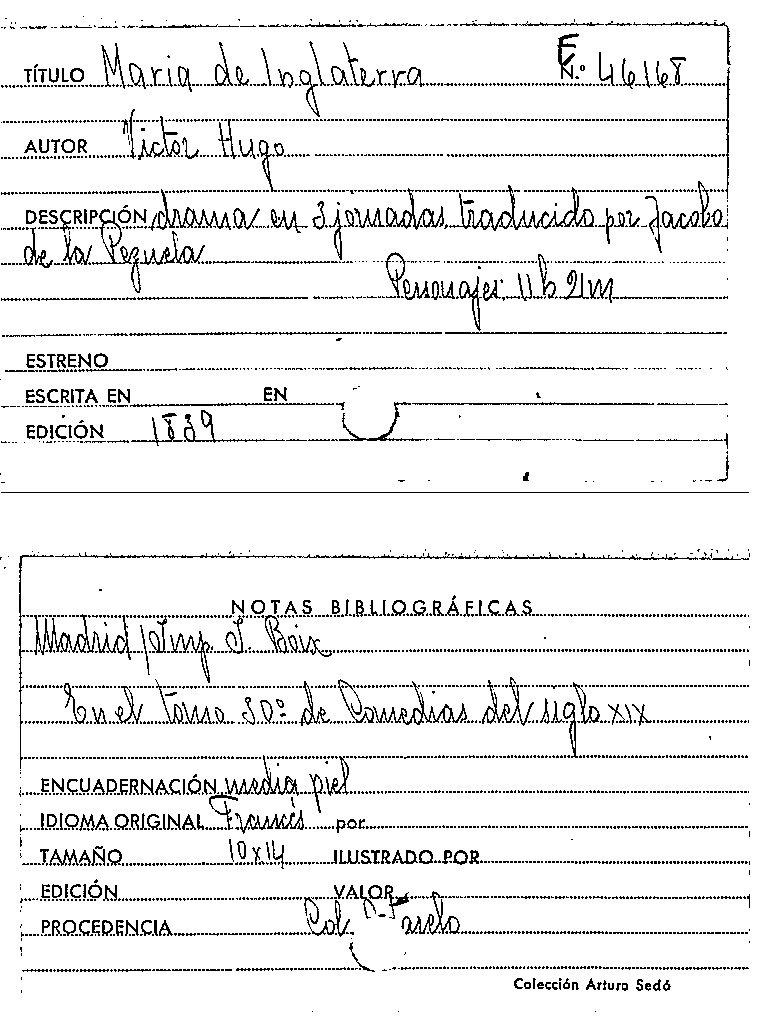 TÍTULO Maria de Inglaterra F N.º 46168
AUTOR Victor Hugo
DESCRIPCIÓN drama en 3 jornadas traducido por Jacobo
de la Pezuela
Personajes: 11h 2m
ESTRENO
ESCRITA EN EN
EDICIÓN 1839
NOTAS BIBLIOGRÁFICAS
Madrid Imp I. Boix
En el tomo 30º de Comedias del siglo XIX
ENCUADERNACIÓN media piel
IDIOMA ORIGINAL Francés por
TAMAÑO 10x14 ILUSTRADO POR
EDICIÓN VALOR
PROCEDENCIA Col.
Colección Arturo Sedó